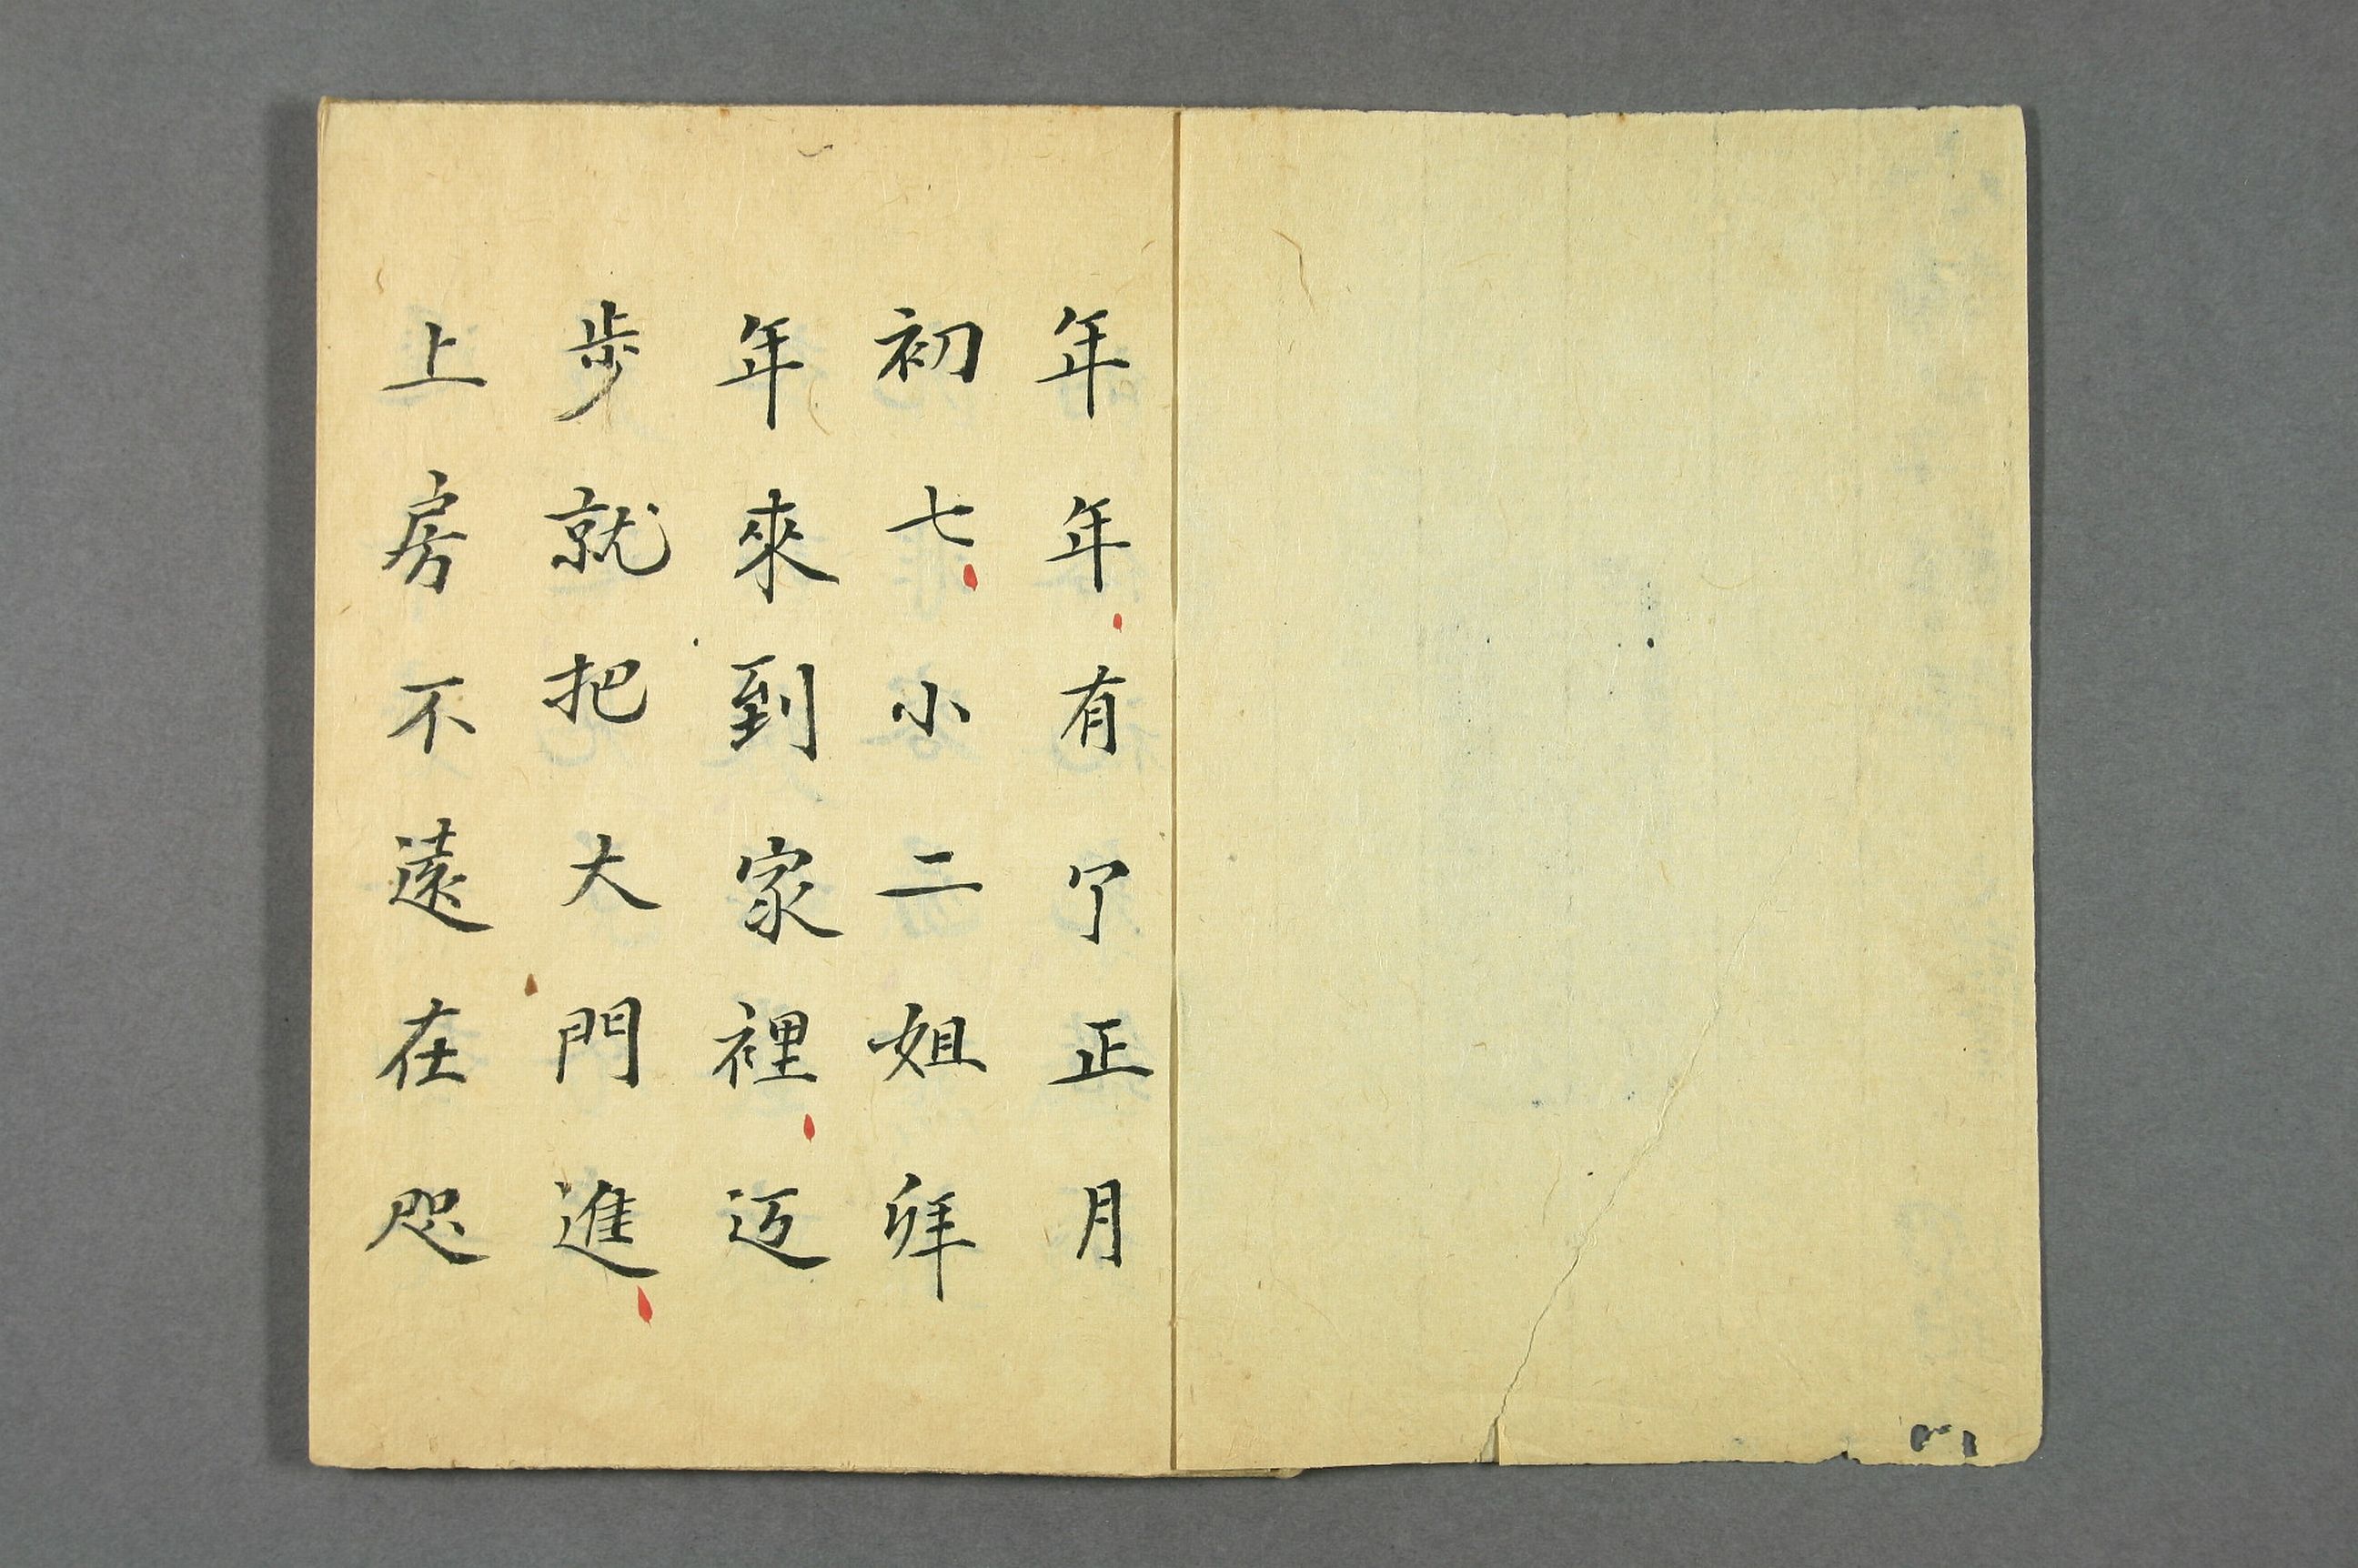 年年有亇正月
初七小二姐拜
年來到家裡迈
步就把大門進
上房不遠在咫